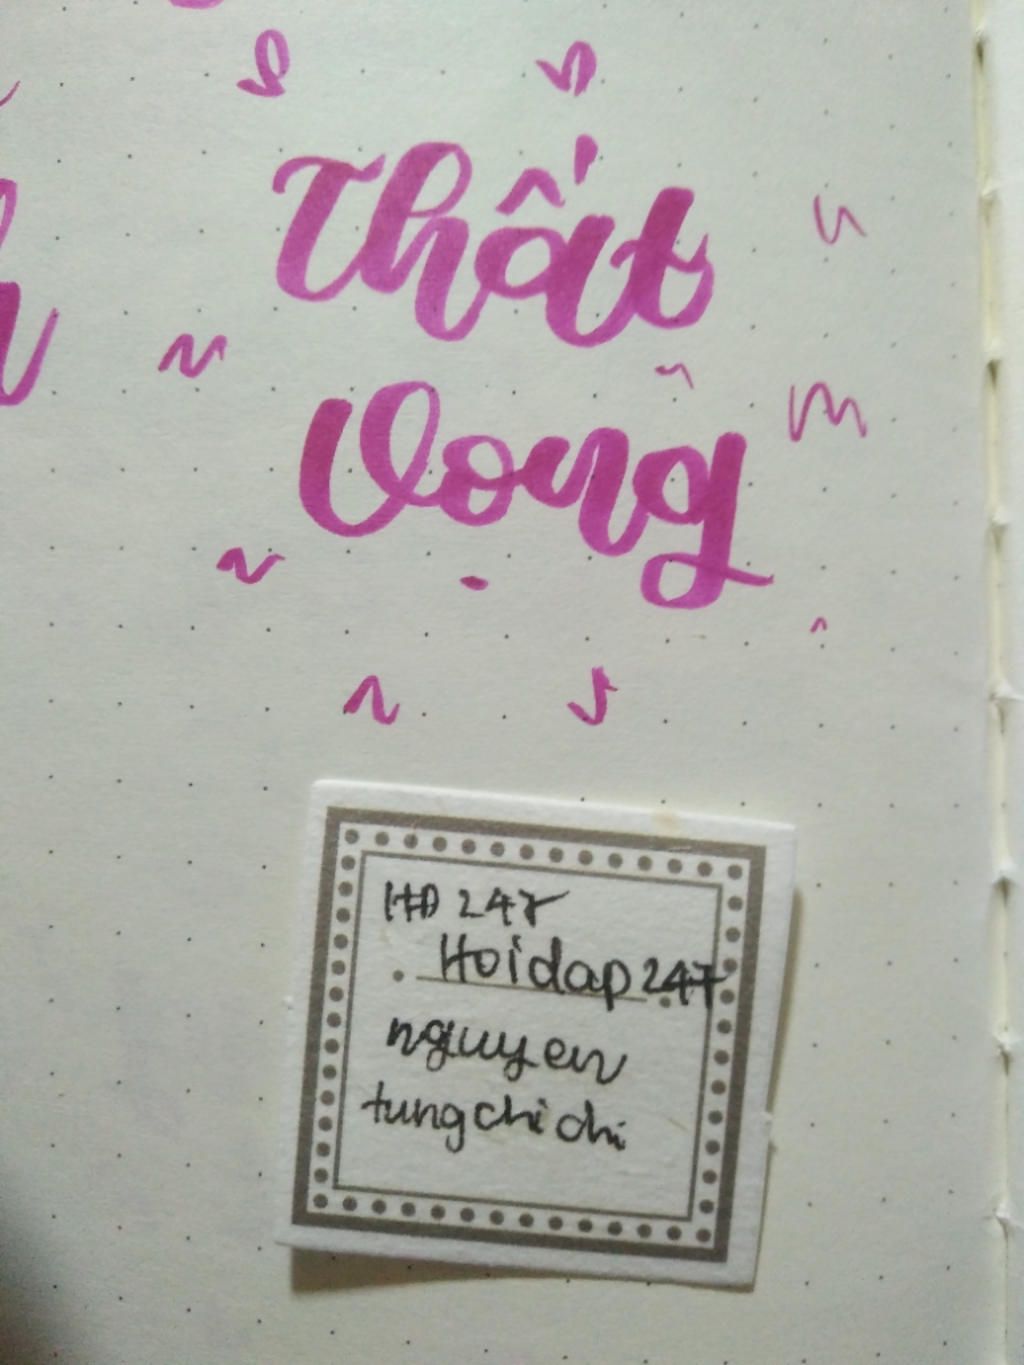 Thất
Vọng
HD 247
Hoidap247
nguyen
tungchichi